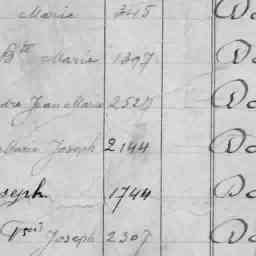 Marie 345 Do
Bte Marie 1397 Do
dre Jean Marie 2527 Do
Marie Joseph 2144 Do
seph 1744 Do
Joseph 2307 Do